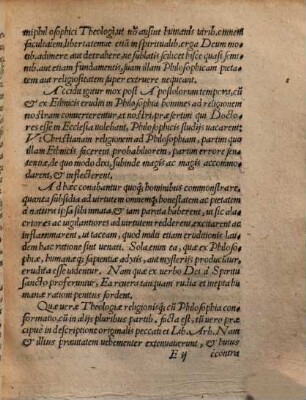 miphilosophici Theologi, ut nõ ausint humanis uirib. omnem
facultatem, libertatemue etiã in spiritualib. erga Deum mo-
tib. adimere aut detrahere, ne sublatis scilicet hisce quasi semi-
nib. aut etiam fundamentis, suam illam Philosophicam pieta-
tem aut religiositatem super extruere nequeant.
Accidit igitur mox post Apostolorum tempora, cũ
& ex Ethnicis eruditi in Philosophia homines ad religionem
nostram conuerterentur, et nostri, præsertim qui Docto-
res essent in Ecclesia uolebant, Philosophicis studijs uacarent
Vt Christianam religionem ad Philosophiam, partim quo
illam Ethnicis facerent probabiliorem, partim errore sen-
tentiæ, de quo modo dixi, subinde magis ac magis accommo-
darent, & inflecterent.
Ad hæc conabantur quoq; hominibus commonstrare,
quanta subsidia ad uirtutem omnemq; honestatem ac pietatem
à natura ipsa sibi innata & tam parata haberent, ut sic ala-
criores ac uigilantiores ad uirtutem redderent, excitarent ac
inflammarent, ut taceam, quod multi etiam eruditionis lau-
dem hac ratione sint uenati. Sola enim ea, quæ ex Philoso-
phiæ, humanæq; sapientiæ adytis, aut mysterijs producitur,
erudita esse uidentur. Nam quæ ex uerbo Dei & Spiritu
sancto proferuntur, Ea reuera tanquam rudia et inepta hu-
manæ rationi penitus sordent.
Quæ ueræ Theologiæ religionisq; cũ Philosophia con-
formatio, cũ in alijs pluribus partib. facta est, tũ uero præ
cipue in descriptione originalis peccati et Lib. Arb. Nam
& illius prauitatem uehementer extenuauerunt, & huius
E ij econtra